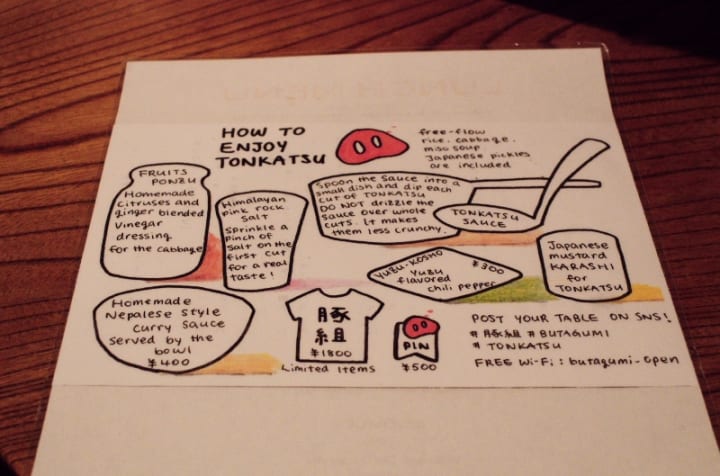 HOW TO
ENJOY
TONKATSU
free-flow
rice, cabbage,
miso soup
Japanese pickles
are included
FRUITS
PONZU
Homemade
Citruses and
ginger blended
Vinegar
dressing
for the cabbage
Himalayan
pink rock
salt
Sprinkle a
pinch of
salt on the
first cut
for a real
taste!
Spoon the sauce into a
small dish and dip each
cut of TONKATSU
DO NOT drizzle the
sauce over whole
cuts. It makes
them less crunchy.
TONKATSU
SAUCE
YUZU-KOSHO
¥300
Yuzu
flavored
chili pepper
Japanese
mustard
KARASHI
for
TONKATSU
Homemade
Nepalese Style
Curry Sauce
Served by the
bowl
¥400
豚
組
¥1800
Limited Items
PIN
¥500
POST YOUR TABLE ON SNS!
#豚組 #BUTAGUMI
# TONKATSU
FREE Wi-Fi : butagumi-open